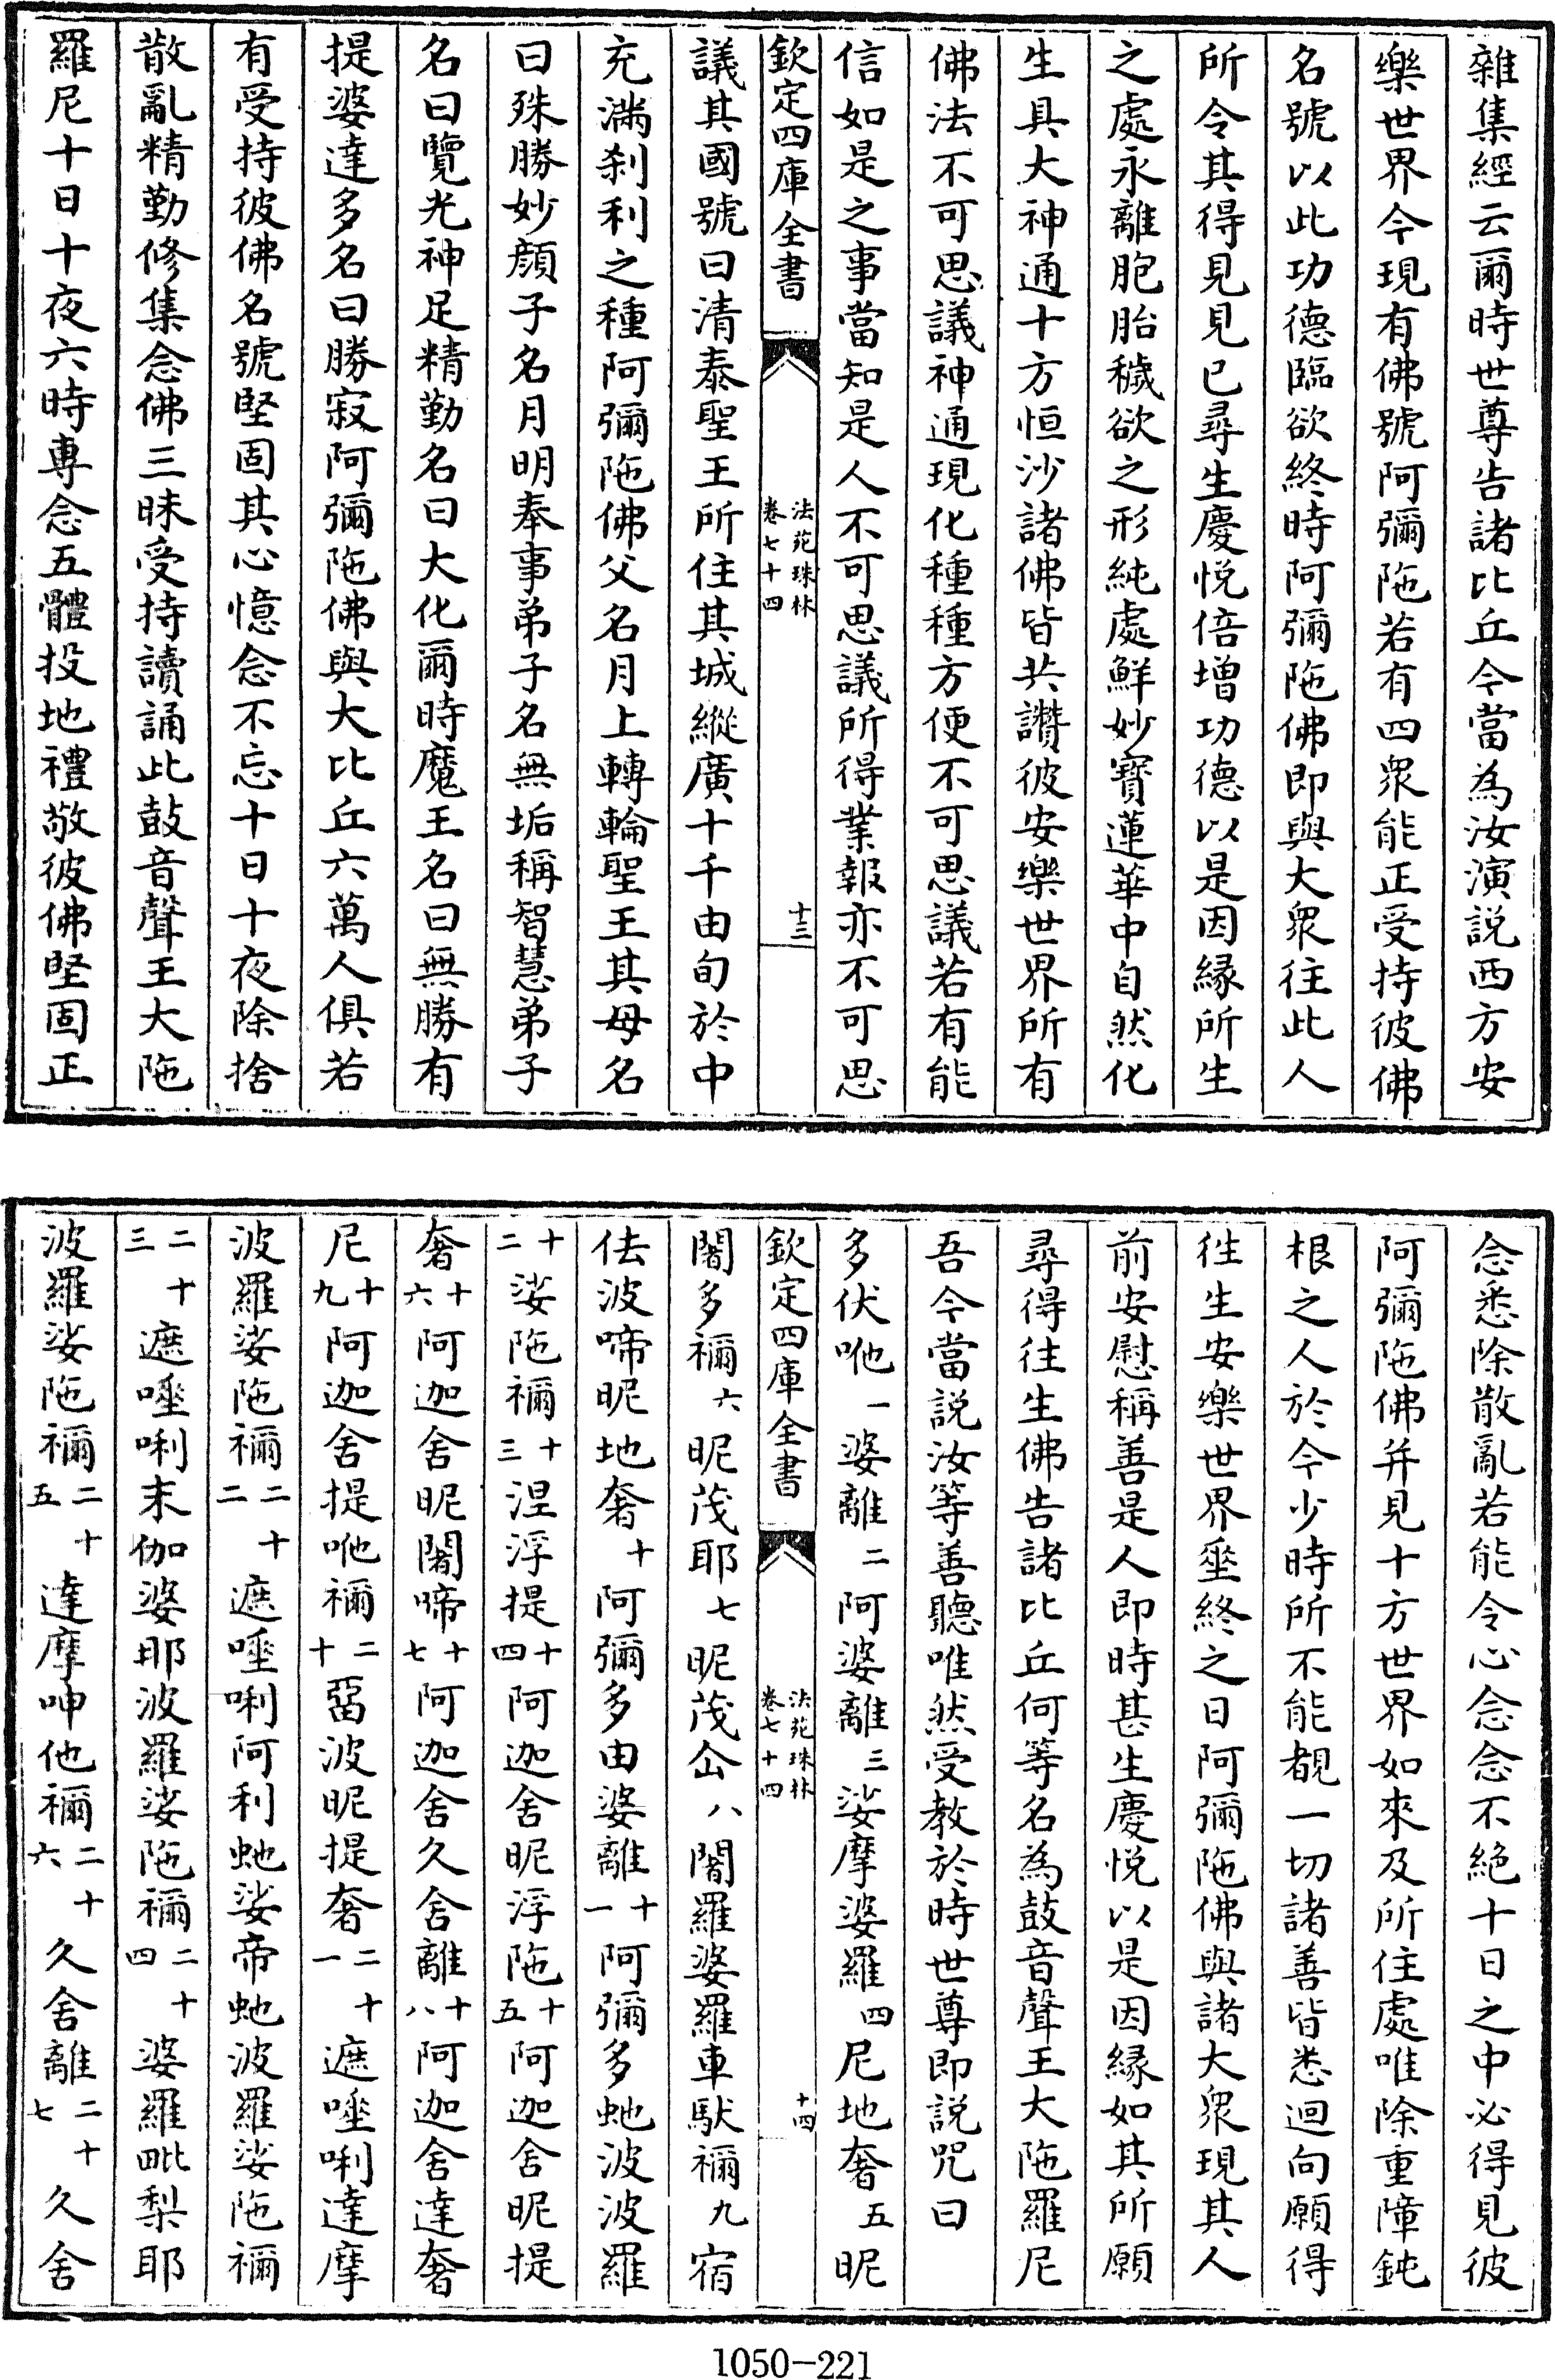 雜集經云爾時世尊告諸比丘今當為汝演説西方安
樂世界今現有佛號阿彌陁若有四衆能正受持彼佛
名號以此功德臨欲終時阿彌陁佛即與大衆往此人
所令其得見見已尋生慶悦倍增功德以是因緣所生
之處永離胞胎穢欲之形純處鮮妙寳蓮華中自然化
生具大神通十方恒沙諸佛皆共讚彼安樂世界所有
佛法不可思議神通現化種種方便不可思議若有能
信如是之事當知是人不可思議所得業報亦不可思
欽定四庫全書
法苑珠林
卷七十四
十三
議其國號曰清泰聖王所住其城縱廣十千由旬於中
充滿刹利之種阿彌陁佛父名月上轉輪聖王其母名
曰殊勝妙顔子名月明奉事弟子名無垢稱智慧弟子
名曰覽光神足精勤名曰大化爾時魔王名曰無勝有
提婆達多名曰勝寂阿彌陁佛與大比丘六萬人俱若
有受持彼佛名號堅固其心憶念不忘十日十夜除捨
散亂精勤修集念佛三昧受持讀誦此鼓音聲王大陁
羅尼十日十夜六時專念五體投地禮敬彼佛堅固正
念悉除散亂若能令心念念不絶十日之中必得見彼
阿彌陁佛并見十方世界如來及所住處唯除重障鈍
根之人於今少時所不能覩一切諸善皆悉迴向願得
徃生安樂世界垂終之日阿彌陁佛與諸大衆現其人
前安慰稱善是人即時甚生慶悦以是因縁如其所願
尋得往生佛告諸比丘何等名為鼓音聲王大陁羅尼
吾今當説汝等善聽唯然受教於時世尊即説咒曰
多伏咃一婆離二阿婆離三娑摩婆羅四尼地奢五昵
欽定四庫全書
法苑珠林
卷七十四
十四
闍多禰六昵茂耶七昵茂仚八闍羅婆羅車馱禰九宿
佉波啼昵地奢十阿彌多由婆離十一阿彌多虵波波羅
十二娑陁禰十三涅浮提十四阿迦舍昵浮陁十五阿迦舍昵提
奢十六阿迦舍昵闍啼十七阿迦舍久舍離十八阿迦舍達奢
尼十九阿迦舍提咃禰二十畱波昵提奢二十一遮唾唎達摩
波羅娑陁禰二十二遮唾唎阿利虵娑帝虵波羅娑陁禰
二十三遮唾唎末伽婆耶波羅娑陁禰二十四婆羅毗梨耶
波羅娑陁禰二十五達摩呻他禰二十六久舍離二十七久舍
1050-221